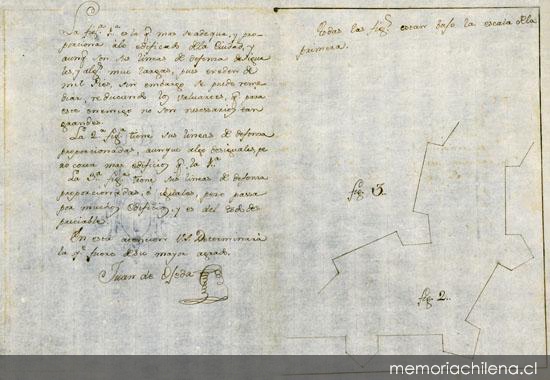 La fig.ª 1.ª es la q.e mas se adequa, y pro-
porciona â lo edificado de la Ciudad, y
aunq.e son sus lineas de defensa desigua-
les, y alg.s mui largas, pues exceden de
mil Pies, sin embargo se puede reme-
diar, reduciendo los valuartes, q.e para
este enemigo no son necesarios tan
grandes.
La 2.ª fig.ª tiene sus lineas de defensa
proporcionadas, aunque algo desiguales, pe-
ro coxta mas edificios q.e la 1.ª
La 3.ª fig.ª tiene sus lineas de defensa
proporcionadas, è iguales, pero passa
por muchos edificios, y es del todo des-
preciable
En esta atencion VS. Determinarà
la q.e fuere de su mayor agrado.
Juan de Oseda
Todas las fig.s estan bajo la escala de la
primera.
fig. 3.
fig. 2.
memoriachilena.cl